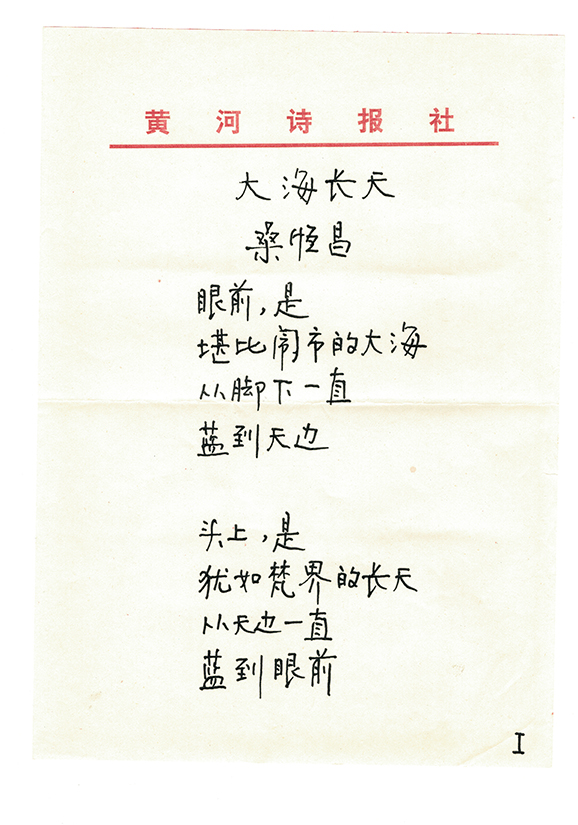 黄河诗报社
大海长天
桑恒昌
眼前，是
堪比闹市的大海
从脚下一直
蓝到天边
头上，是
犹如梵界的长天
从天边一直
蓝到眼前
I